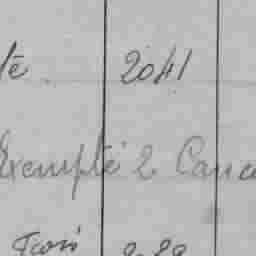 té 2041
Exempté 2 Cana
Trois 288